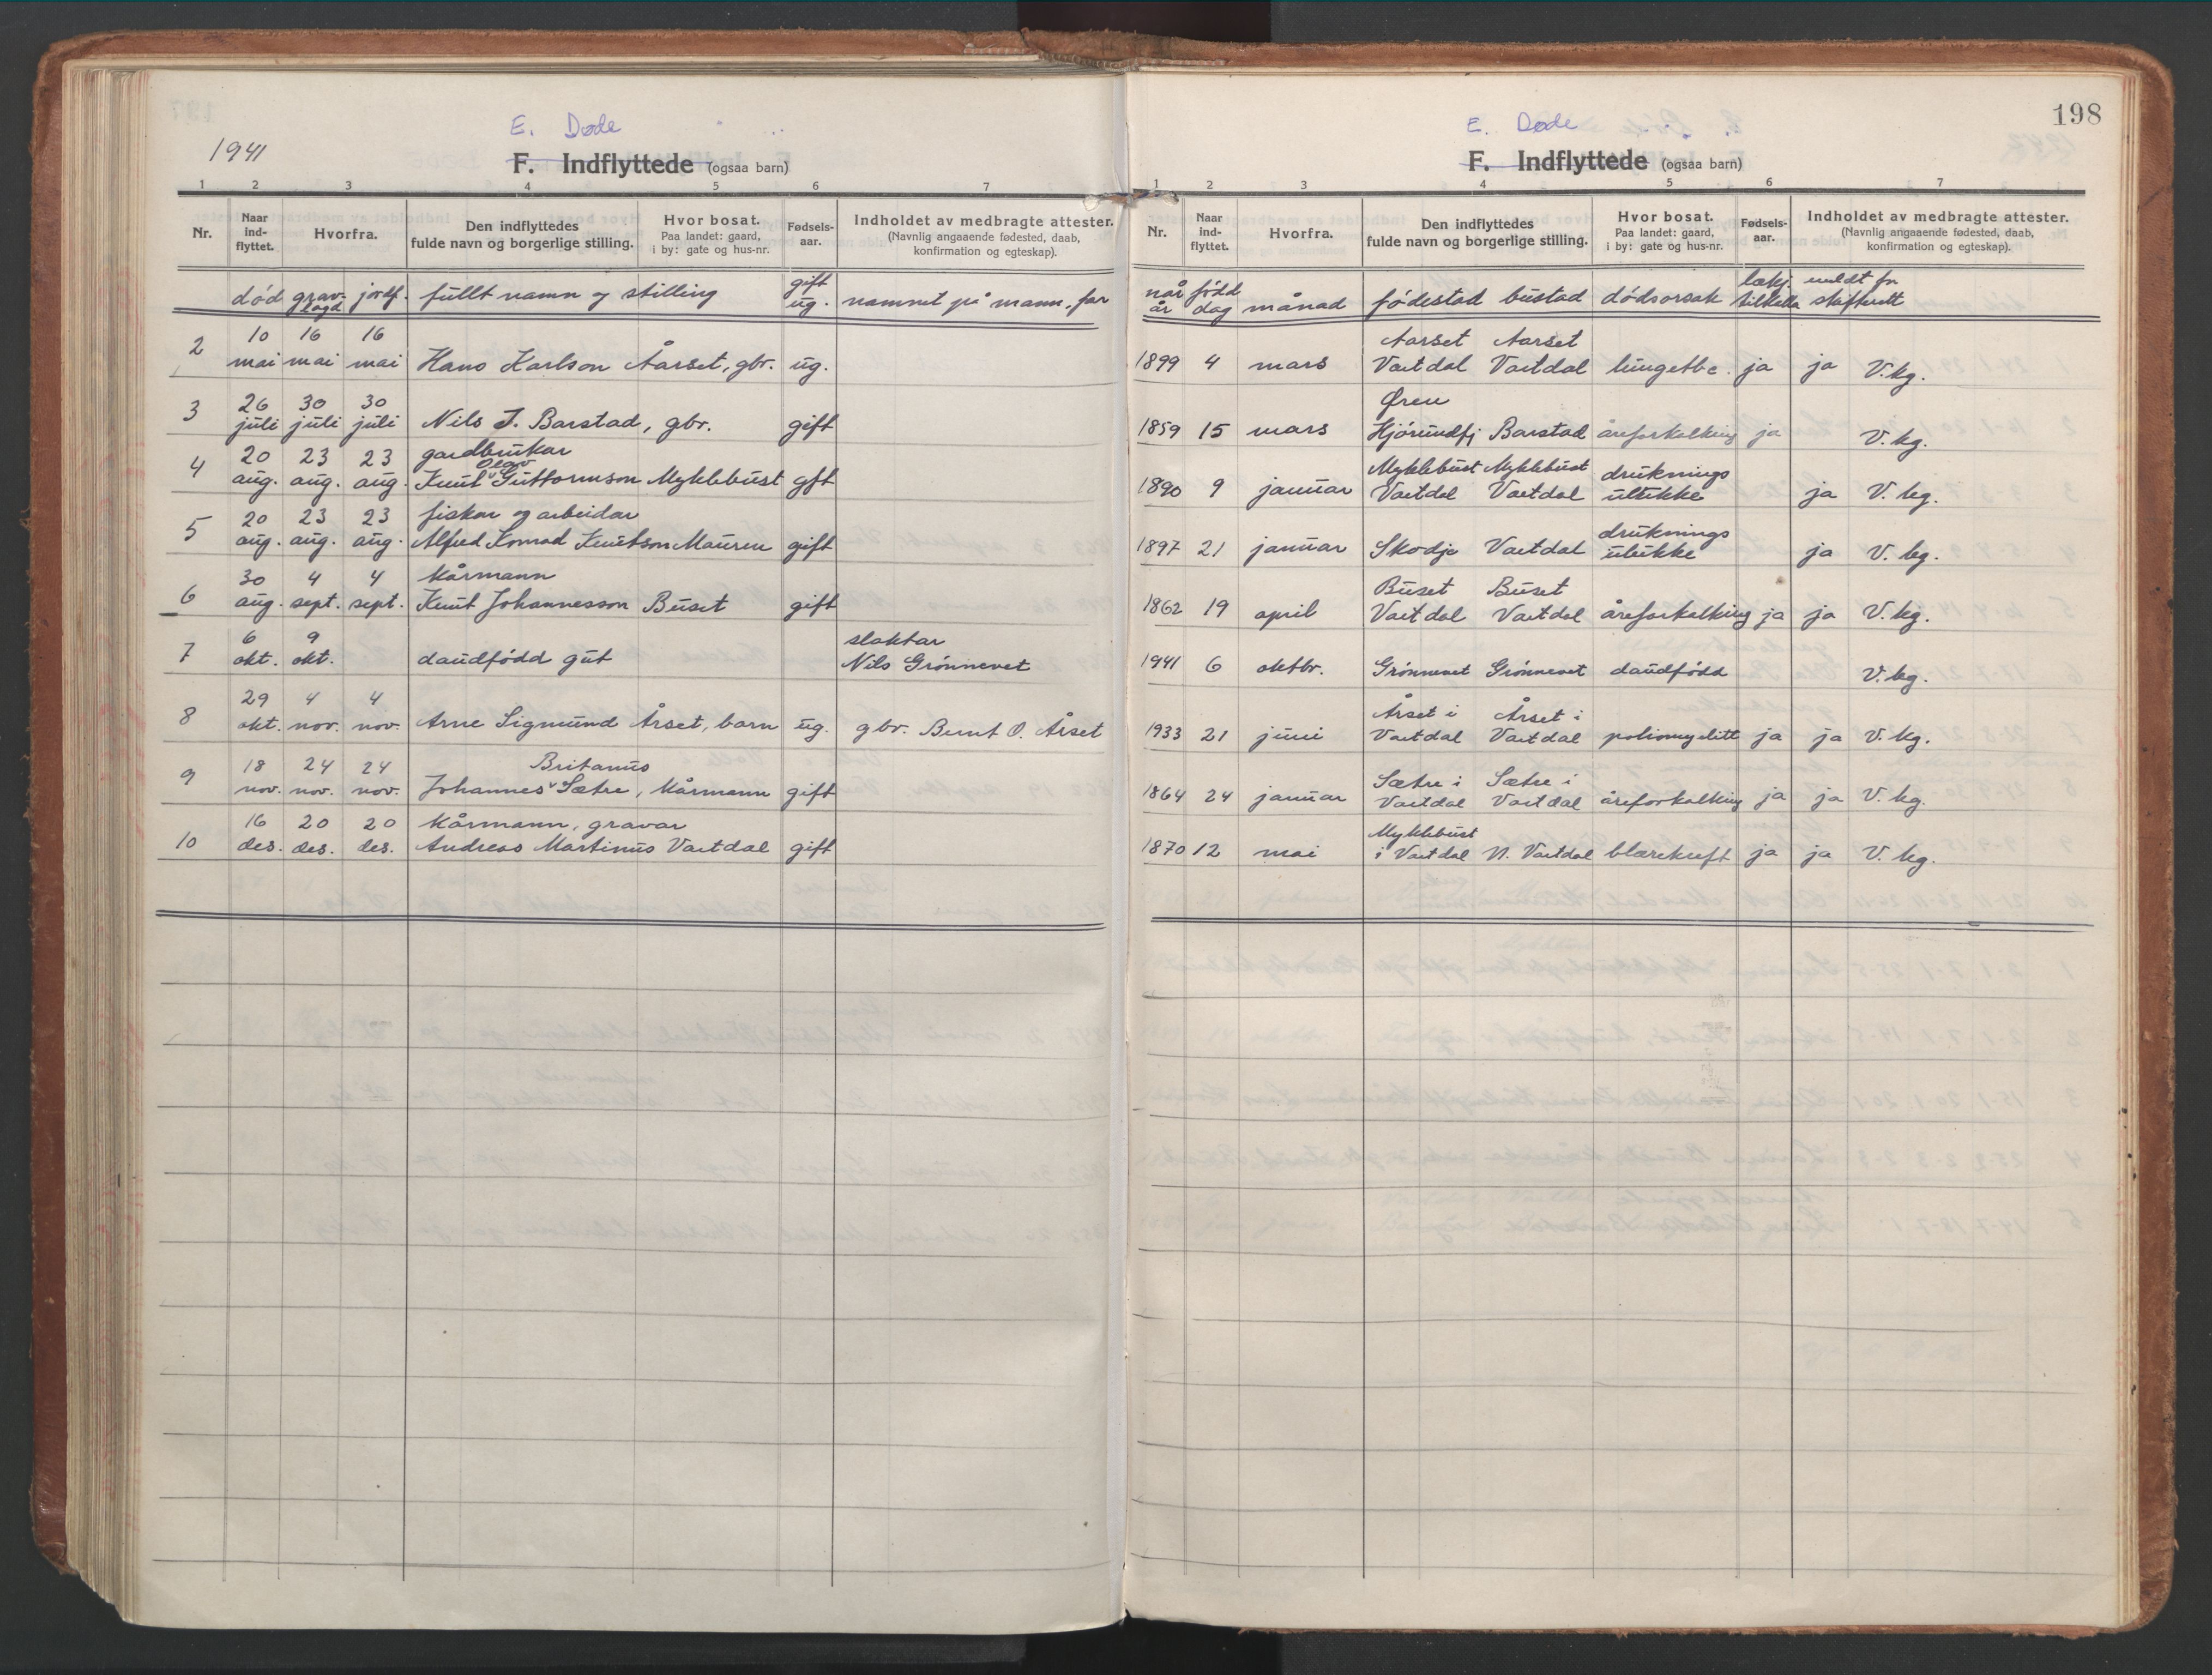 E. Døde
1941
F. Indflyttede (ogsaa barn)
1 2 3 4 5 6 7
Nr. Naar ind-flyttet. Hvorfra. Den indflyttedes fulde navn og borgerlige stilling. Hvor bosat. Paa landet: gaard, i by: gate og hus-nr. Fødsels-aar. Indholdet av medbragte attester. (Navnlig angaaende fødested, daab, konfirmation og egteskap).
død grav-lagd jordf. fullt namn og stilling gift ug. namnet på mann, far
10 16 16
2 mai mai mai Hans Karlson Aarset, gbr. ug.
26 30 30
3 juli juli juli Nils J. Barstad, gbr. gift
20 23 23 gardbrukar
Olav
4 aug. aug. aug. Knut Guttormson Myklebust gft
20 23 23 fiskar og arbeidar
5 aug. aug. aug. Alfred Konrad Knutson Mauren gift
30 4 4 kårmann
6 aug. sept. sept. Knut Johannesson Buset gift
6 9 slaktar
7 okt. okt. daudfødd gut Nils Grønnevet
29 4 4
8 okt. nov. nov. Arne Sigmund Årset, barn ug. gbr. Bernt O. Årset
18 24 24 Britanus
9 nov. nov. nov. Johannes Sætre, kårmann gift
16 20 20 kårmann, gravar
10 des. des. des. Andreas Martinus Vartdal gift
198
E. Døde
F. Indflyttede (ogsaa barn)
1 2 3 4 5 6 7
Nr. Naar ind-flyttet. Hvorfra. Den indflyttedes fulde navn og borgerlige stilling. Hvor bosat. Paa landet: gaard, i by: gate og hus-nr. Fødsels-aar. Indholdet av medbragte attester. (Navnlig angaaende fødested, daab, konfirmation og egteskap).
når født lækj. meldt fr
år dag månad fødestad bustad dødsorsak tilkalla skifterett
Aarset Aarset
1899 4 mars Vartdal Vartdal lungetbc. ja ja V.kg.
Øren
1859 15 mars Hjørundfj Barstad åreforkalking ja V.kg.
Myklebust Myklebust druknings
1890 9 januar Vartdal Vartdal ulukke ja V. kg.
druknings
1897 21 januar Skodje Vartdal ulukke ja V. kg.
Buset Buset
1862 19 april Vartdal Vartdal åreforkalking ja ja V. kg.
1941 6 oktbr. Grønnevet Grønnevet daudfødd V. kg.
Årset i Årset i
1933 21 juni Vartdal Vartdal poliomyelitt ja ja V. kg.
Sætre i Sætre i
1864 24 januar Vartdal Vartdal åreforkalking ja ja V. kg.
Myklebust
1870 12 mai i Vartdal N. Vartdal blærekreft ja ja V. kg.